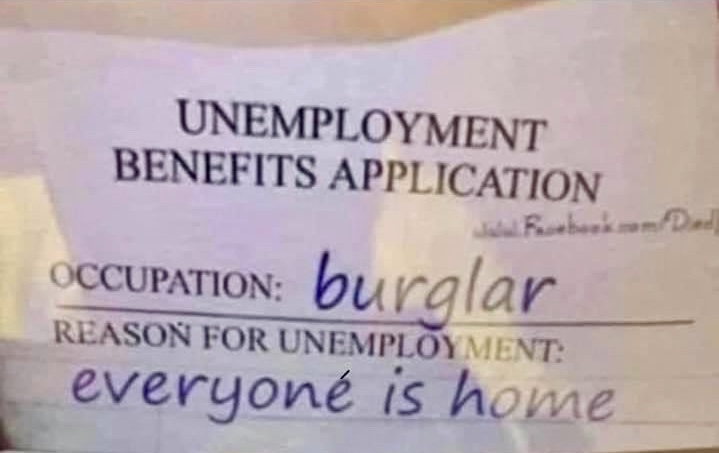 UNEMPLOYMENT
BENEFITS APPLICATION
OCCUPATION: burglar
REASON FOR UNEMPLOYMENT:
everyoné is home